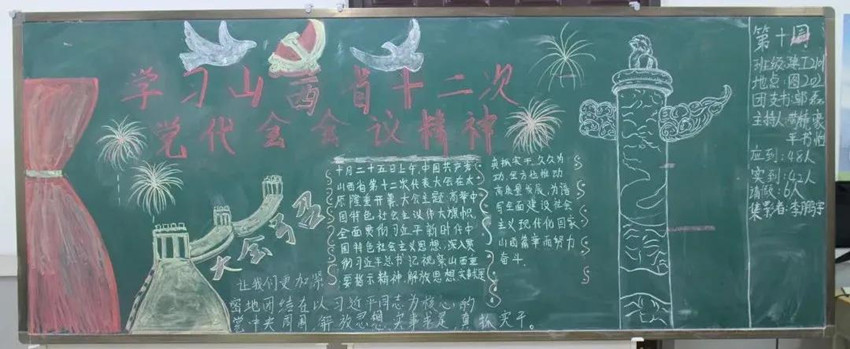 学习山西省十二次
党代会会议精神
大会号召
十月二十五日上午,中国共产党
山西省第十二次代表大会在太
原隆重开幕,大会主题:高举中
国特色社会主义伟大旗帜,
全面贯彻习近平新时代中
国特色社会主义思想,深入贯
彻习近平总书记视察山西重
要指示精神,解放思想
真抓实干,久久为
功,全方位推动
高质量发展,为谱
写全面建设社会
主义现代化国家
山西篇章而努力
奋斗。
让我们更加紧
密地团结在以习近平同志为核心的
党中央周围,解放思想,实事求是,真抓实干。
第十周
班级:
地点:图202
团支书:
主持人:
应到:48人
实到:42人
请假:6人